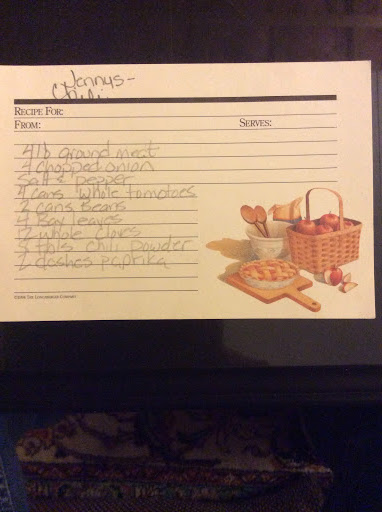 Jennys-
Chili
RECIPE FOR:
FROM: SERVES:
4 lb ground meat
4 chopped onion
Salt & pepper
4 cans whole tomatoes
2 cans Beans
4 Bay leaves
12 whole cloves
3 tbls chili powder
2 dashes paprika
©1998 THE LONGABERGER COMPANY